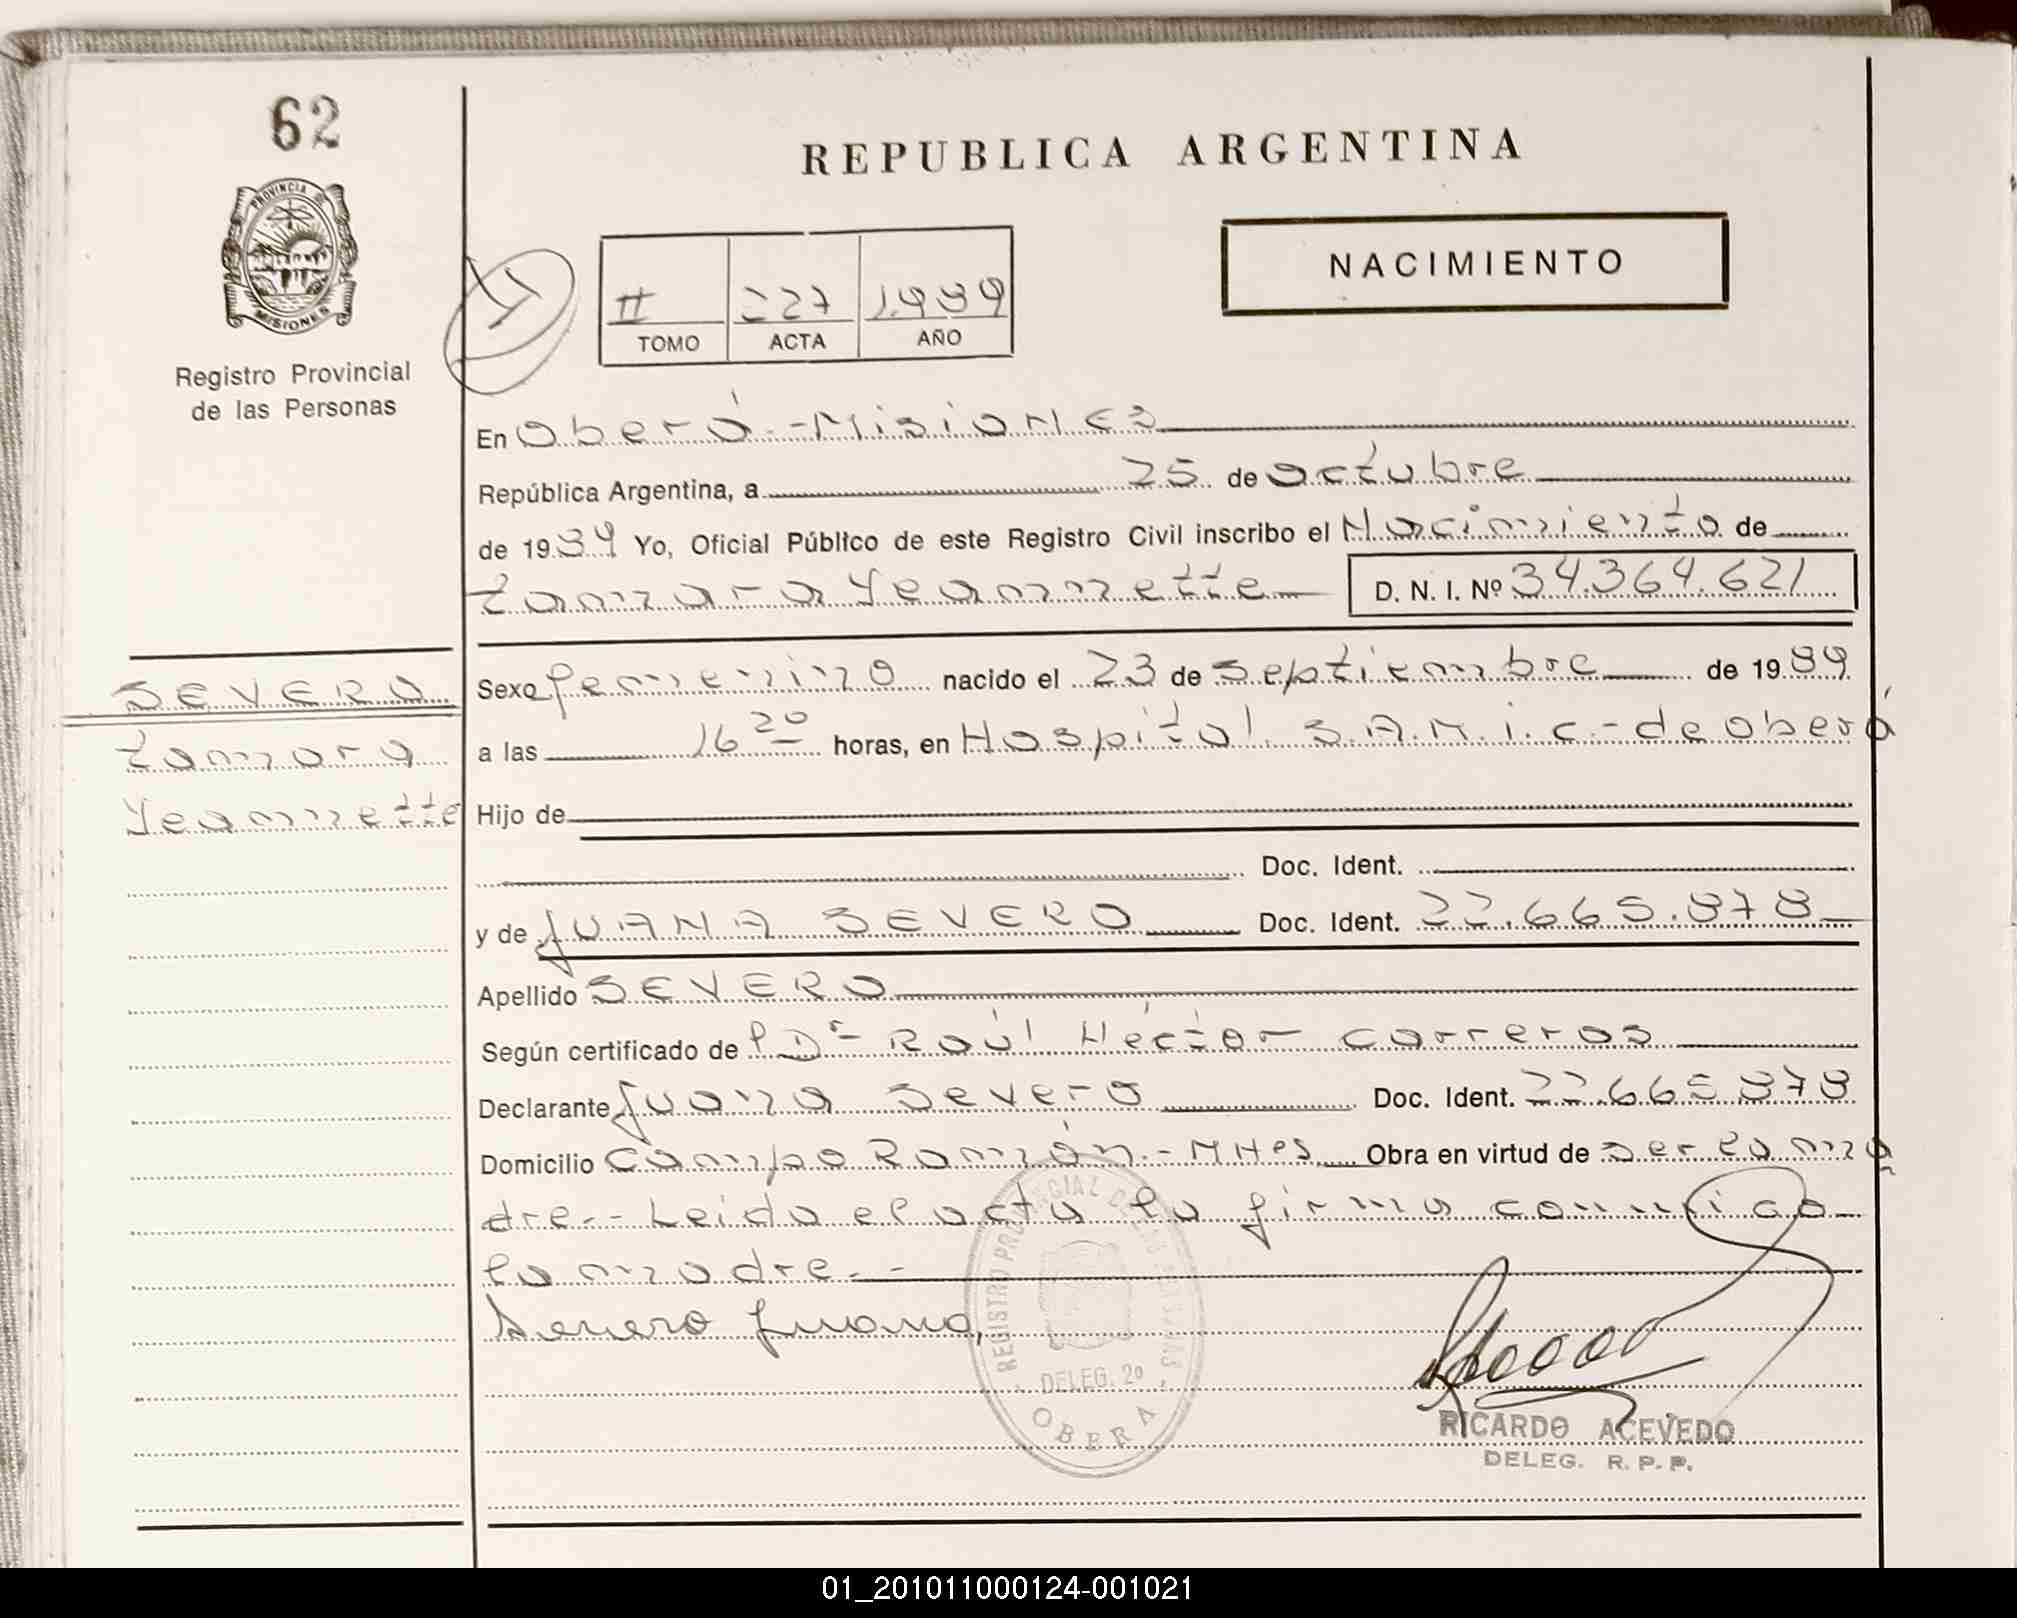 62
REPUBLICA ARGENTINA
PROVINCIA DE
MISIONES
Registro Provincial
de las Personas
II 227 1.989
TOMO ACTA AÑO
NACIMIENTO
En Oberá.-Misiones
República Argentina, a 25 de octubre
de 1989 Yo, Oficial Público de este Registro Civil inscribo el Nacimiento de
Tamara Yeannette D. N. I. Nº 34.364.621
SEVERO
Tamara
Yeannette
Sexo femenino nacido el 23 de septiembre de 1989
a las 16 20 horas, en Hospital S.A.M.i.c.-de Oberá
Hijo de
Doc. Ident.
y de JUANA SEVERO Doc. Ident. 22.665.878
Apellido SEVERO
Según certificado de l Dr Raúl Héctor Carreras
Declarante Juana Severo Doc. Ident. 22.665.878
Domicilio Campo Ramón.-MNes Obra en virtud de ser la ma
dre.- Leida el acta la firma conmigo
la madre.-
Severo Juana,
REGISTRO PROVINCIAL DE LAS PERSONAS
DELEG. 2º
OBERA
RICARDO ACEVEDO
DELEG. R. P. P.
01_201011000124-001021